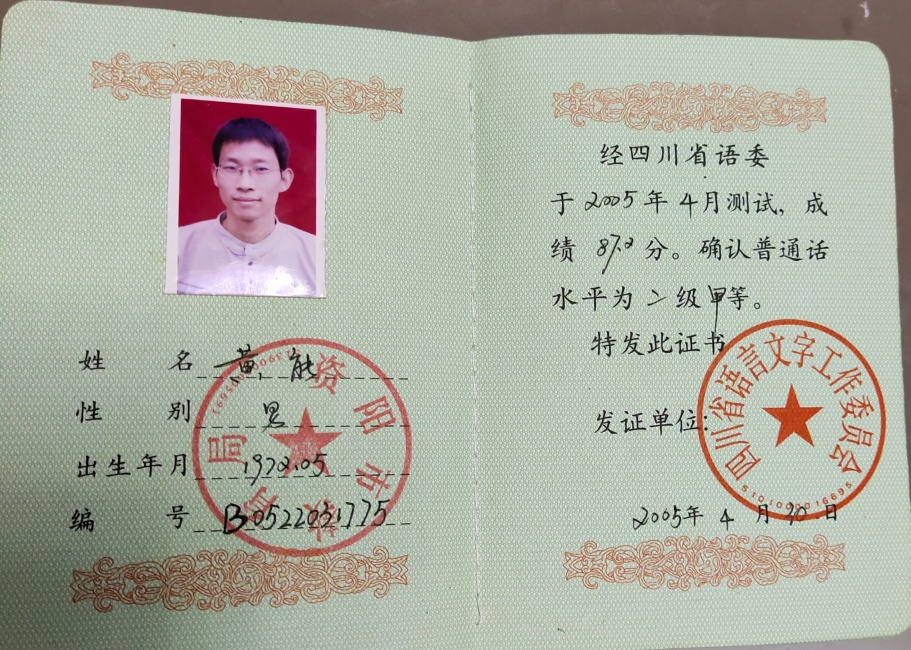 姓 名 黄能
性 别 男
出生年月 1972.05
编 号 B0522031775
资阳市教育局
经四川省语委
于2005年4月测试，成
绩 87.2 分。确认普通话
水平为 二 级 甲等。
特发此证书
发证单位：
四川省语言文字工作委员会
5101000016695
2005年 4 月 20 日